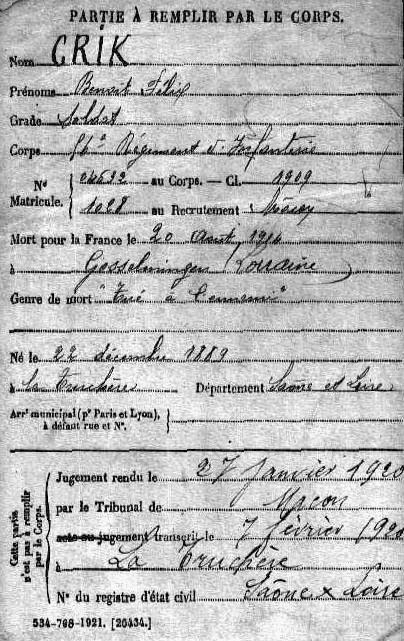 PARTIE À REMPLIR PAR LE CORPS.
Nom CRIK
Prénoms Benoit Félix
Grade Soldat
Corps Régiment d'Infanterie
Nº Matricule. au Corps. — Cl. 1909
1028 au Recrutement Mâcon
Mort pour la France le 20 août 1914
à Gosselmingen Lorraine
Genre de mort "Tué à l'ennemi"
Né le 22 décembre 1889
à La Truchère Département Saône et Loire
Arrᵗ municipal (pʳ Paris et Lyon),
à défaut rue et Nº.
Cette partie n'est pas à remplir par le Corps.
Jugement rendu le 27 janvier 1920
par le Tribunal de Macon
acte ou jugement transcrit le 7 février 1920
à La Truchère
Nº du registre d'état civil Saône & Loire
534-708-1921. [26434.]